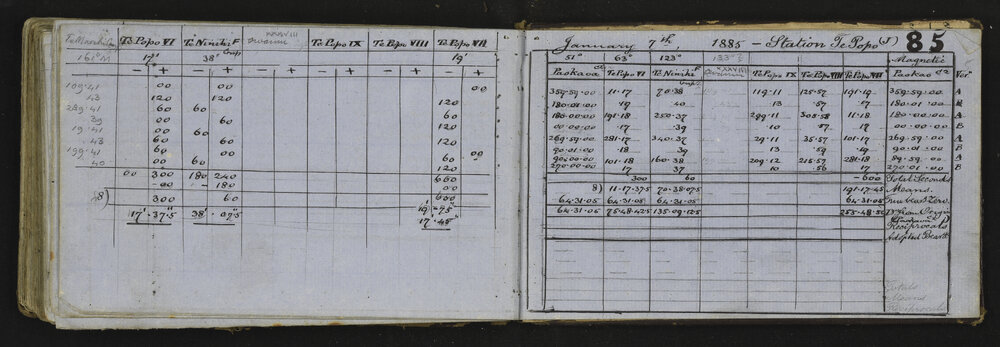 Te Popo VI Te Ninihi F Te Popo IX Te Popo VIII Te Popo VII
161° M 17' 38' 19'
− + − + − + − + − + − +
109.41 00 00 00
43 00 00 120
289.41 60 60 60
39 00 00 120
19.41 00 60 00
43 60 00 120
199.41 60 00 60 00
40 00 60 120
00 300 180 240 660
00 180 00
8) 300 60 660
17'.37.5" 38'.07.5
17'.45"
January 7th, 1885 – Station Te Popo (J) 85
51° 63° 123° 133°½ Magnetic
Paokaoa Te Popo VI Te Ninihi F Te Popo IX Te Popo VIII Te Popo VII Paokaoa Ver
359.59.00 11.17 70.38 119.11 125.57 191.19 359.59.00 A
180.01.00 19 40 13 57 17 180.01.00 B
180.00.00 191.18 250.37 299.11 305.58 11.18 180.00.00 A
00.00.00 17 39 10 57 17 00.00.00 B
269.59.00 281.17 340.37 29.11 35.57 101.17 269.59.00 A
90.01.00 18 39 13 59 19 90.01.00 B
90.00.00 101.18 160.38 209.12 215.57 281.18 89.59.00 A
270.00.00 17 37 10 56 17 270.01.00 B
300 60 −600 Total Seconds
8) 11.17.37.5 70.38.07.5 191.17.45 Means.
64.31.05 64.31.05 64.31.05 64.31.05 Zero.
64.31.05 75.48.42.5 135.09.12.5 255.48.50
Reciprocals
Adopted Bears
Totals
Means
Reciprocals